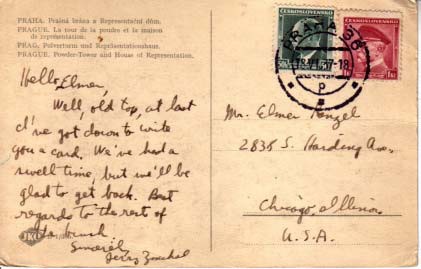 PRAHA. Prašná brána a Representační dům.
PRAGUE. La tour de la poudre et la maison
de représentation.
PRAG. Pulverturm und Repräsentationshaus.
PRAGUE. Powder-Tower and House of Representation.
Hello Elmer,
Well, old top, at last
I've got down to write
you a card. We've had a
swell time, but we'll be
glad to get back. Best
regards to the rest of
bunch.
Sincerely
Jerry
JKO
ČESKOSLOVENSKO
ČESKOSLOVENSKO
PRAHA 36
Mr. Elmer
2838 S. Harding Ave.
Chicago, Illinois
U.S.A.